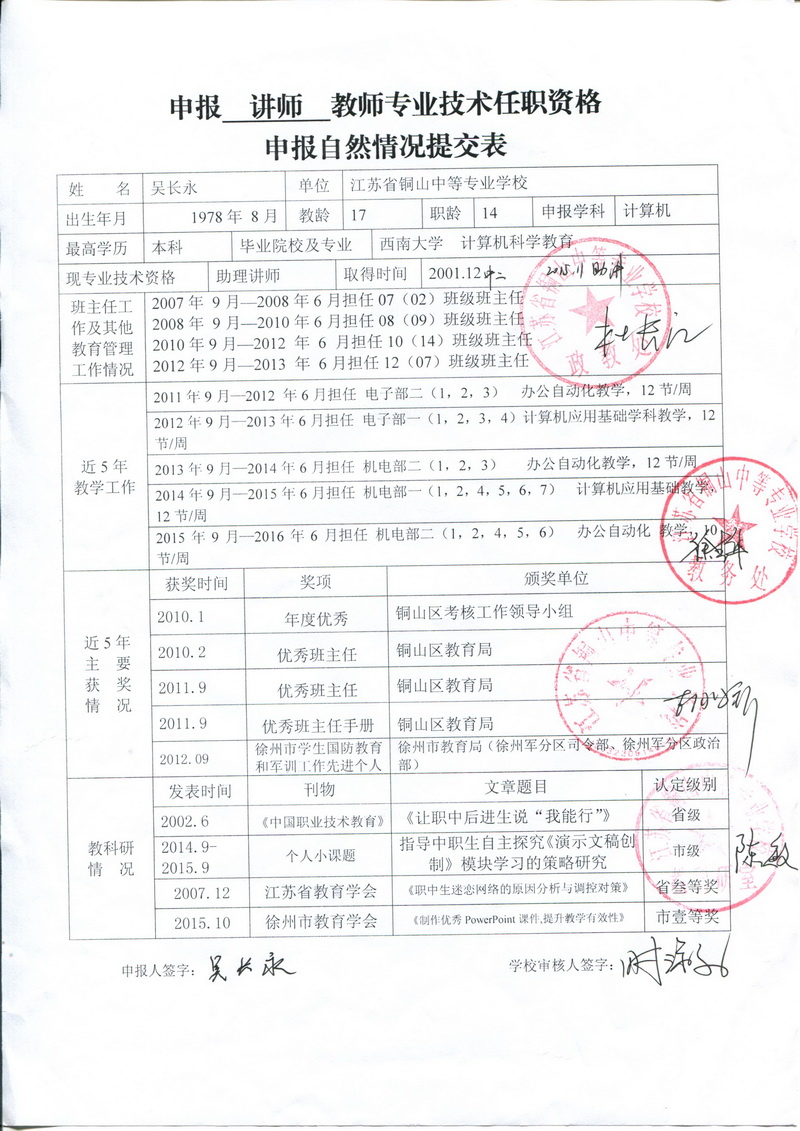 申报 讲师 教师专业技术任职资格
申报自然情况提交表
姓 名 吴长永 单位 江苏省铜山中等专业学校
出生年月 1978 年 8 月 教龄 17 职龄 14 申报学科 计算机
最高学历 本科 毕业院校及专业 西南大学 计算机科学教育
现专业技术资格 助理讲师 取得时间 2001.12 中二 2015.11 助讲
班主任工作及其他教育管理工作情况
2007 年 9 月—2008 年 6 月担任 07（02）班级班主任
2008 年 9 月—2010 年 6 月担任 08（09）班级班主任
2010 年 9 月—2012 年 6 月担任 10（14）班级班主任
2012 年 9 月—2013 年 6 月担任 12（07）班级班主任
江苏省铜山中等专业学校
政教处
近 5 年
教学工作
2011 年 9 月—2012 年 6 月担任 电子部二（1，2，3） 办公自动化教学，12 节/周
2012 年 9 月—2013 年 6 月担任 电子部一（1，2，3，4）计算机应用基础学科教学，12
节/周
2013 年 9 月—2014 年 6 月担任 机电部二（1，2，3） 办公自动化教学，12 节/周
2014 年 9 月—2015 年 6 月担任 机电部一（1，2，4，5，6，7） 计算机应用基础教学，
12 节/周
2015 年 9 月—2016 年 6 月担任 机电部二（1，2，4，5，6） 办公自动化 教学，10
节/周
江苏省铜山中等专业学校
教务处
近 5 年
主 要
获 奖
情 况
获奖时间 奖项 颁奖单位
2010.1 年度优秀 铜山区考核工作领导小组
2010.2 优秀班主任 铜山区教育局
2011.9 优秀班主任 铜山区教育局
2011.9 优秀班主任手册 铜山区教育局
2012.09 徐州市学生国防教育和军训工作先进个人 徐州市教育局（徐州军分区司令部、徐州军分区政治部）
教科研
情 况
发表时间 刊物 文章题目 认定级别
2002.6 《中国职业技术教育》 《让职中后进生说“我能行”》 省级
2014.9-2015.9 个人小课题 指导中职生自主探究《演示文稿创制》模块学习的策略研究 市级
陈敏
2007.12 江苏省教育学会 《职中生迷恋网络的原因分析与调控对策》 省叁等奖
2015.10 徐州市教育学会 《制作优秀 PowerPoint 课件,提升教学有效性》 市壹等奖
申报人签字：吴长永 学校审核人签字：